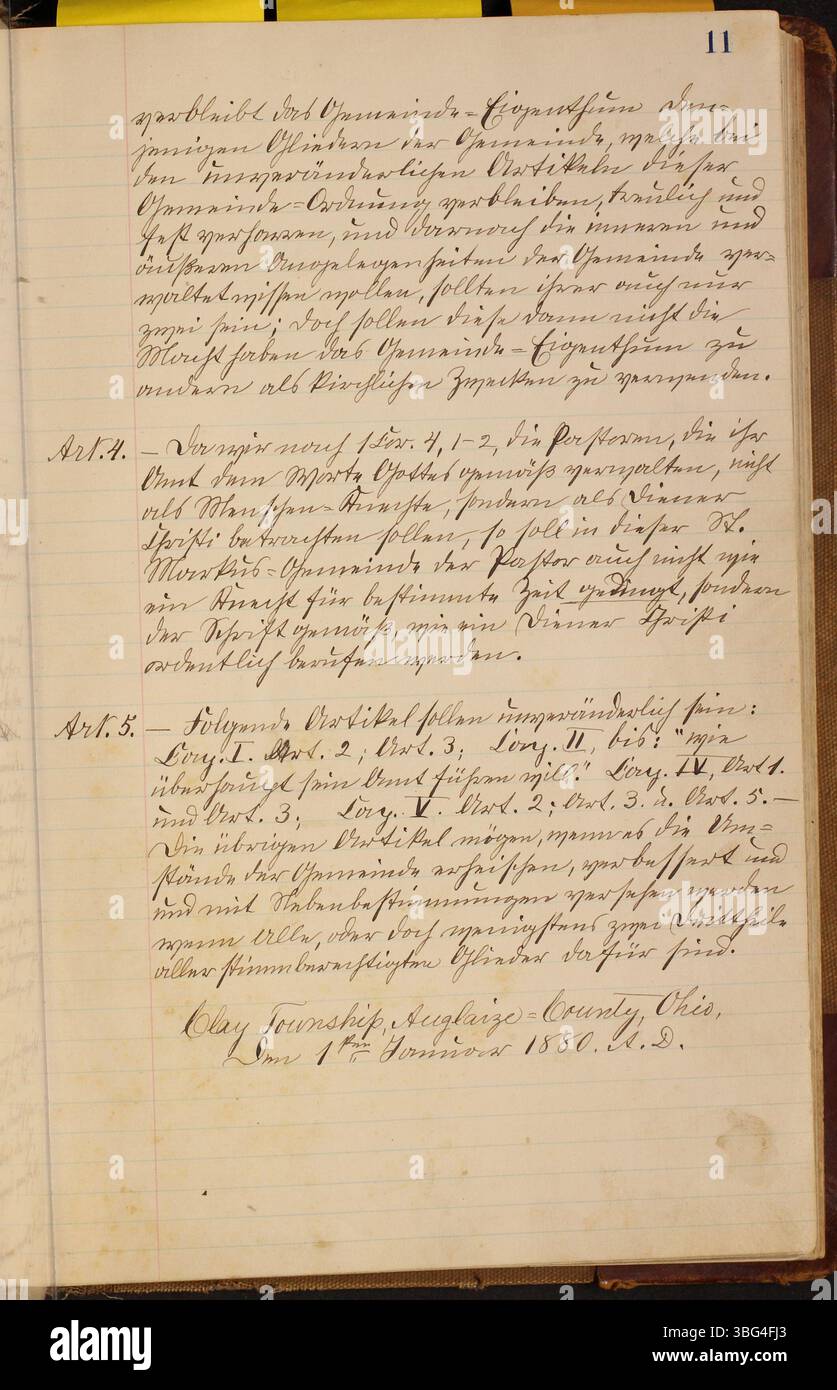 11
verbleibt das Gemeinde=Eigenthum den=
jenigen Gliedern der Gemeinde, welche bei
den unveränderlichen Artikeln dieser
Gemeinde=Ordnung verbleiben, treulich und
fest verharren, und darnach die inneren und
äußeren Angelegenheiten der Gemeinde ver=
waltet wissen wollen, sollten ihrer auch nur
zwei sein; doch sollen diese dann nicht die
Macht haben das Gemeinde=Eigenthum zu
andern als kirchlichen Zwecken zu verwenden.
Art. 4. — Da wir nach 1 Cor. 4, 1-2, die Pastoren, die ihr
Amt dem Worte Gottes gemäß verwalten, nicht
als Menschen=Knechte, sondern als Diener
Christi betrachten sollen, so soll in dieser St.
Markus=Gemeinde der Pastor auch nicht wie
ein Knecht für bestimmte Zeit gedingt, sondern
der Schrift gemäß, wie ein Diener Christi
ordentlich berufen werden.
Art. 5. — Folgende Artikel sollen unveränderlich sein:
Cap. I. Art. 2; Art. 3; Cap. II, bis: "wie
überhaupt sein Amt führen will." Cap. IV, Art 1.
und Art. 3; Cap. V. Art. 2; Art. 3. u. Art. 5. —
Die übrigen Artikel mögen, wenn es die Um=
stände der Gemeinde erheischen, verbessert und
und mit Nebenbestimmungen versehen werden
wenn Alle, oder doch wenigstens zwei Drittheile
aller stimmberechtigten Glieder dafür sind.
Clay Township, Auglaize=County, Ohio,
Den 1ten Januar 1880. A. D.
alamy
Image ID: 3BG4FJ3
www.alamy.com